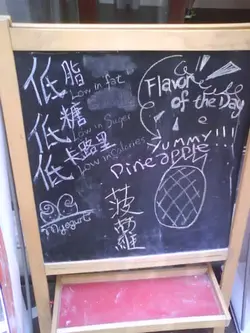 低脂
Low in fat
低糖
Low in Sugar
低卡路里
Low in Calories
myogurt
Flavor
of the Day
YUMMY!!!
Pineapple
菠蘿